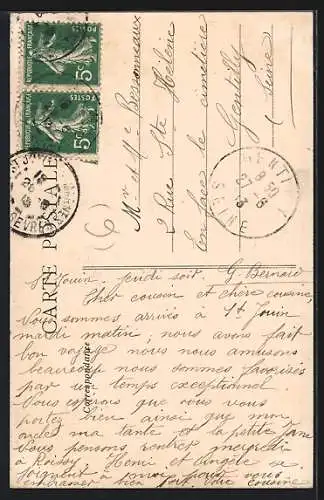 POSTES
RÉPUBLIQUE FRANÇAISE
5c
POSTES
RÉPUBLIQUE FRANÇAISE
5c
CARTE POSTALE
Correspondance
Mr et Me Bessonneaux
2 Rue Ste Hélène
En face le cimetière
Gentilly
Seine
GENTI
SEINE
(6)
St Jouin, jeudi soir, G. Bernard
Cher cousin et chère cousine,
Nous sommes arrivés à St Jouin
mardi matin; nous avons fait
bon voyage nous nous amusons
beaucoup nous sommes favorisés
par un temps exceptionnel
Nous espérons que vous vous
portez bien ainsi que mon
oncle ma tante et la petite Jane
Nous pensons rentrer mercredi
à Roissy. Henri et Angèle se
joignent à moi pour vous
embrasser bien fort votre cousine